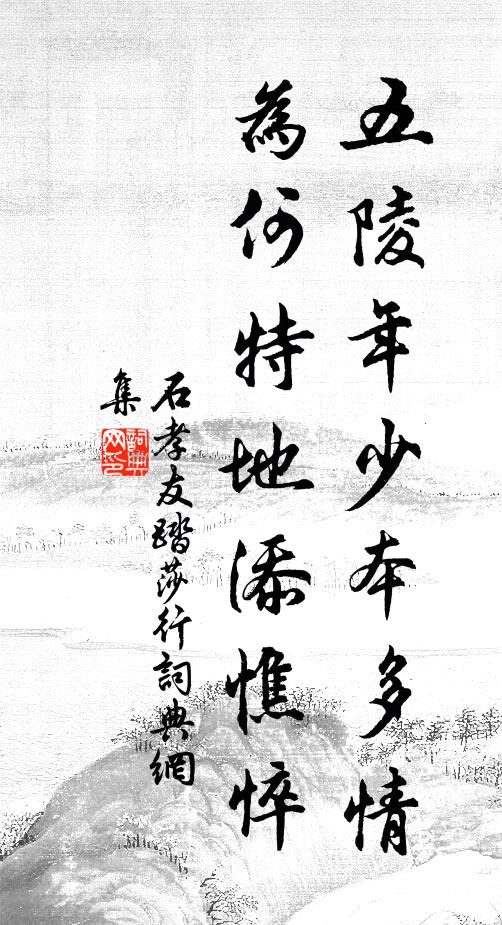 五陵年少本多情
為何特地添憔悴
石孝友踏莎行詞典網
集
詞典
网印